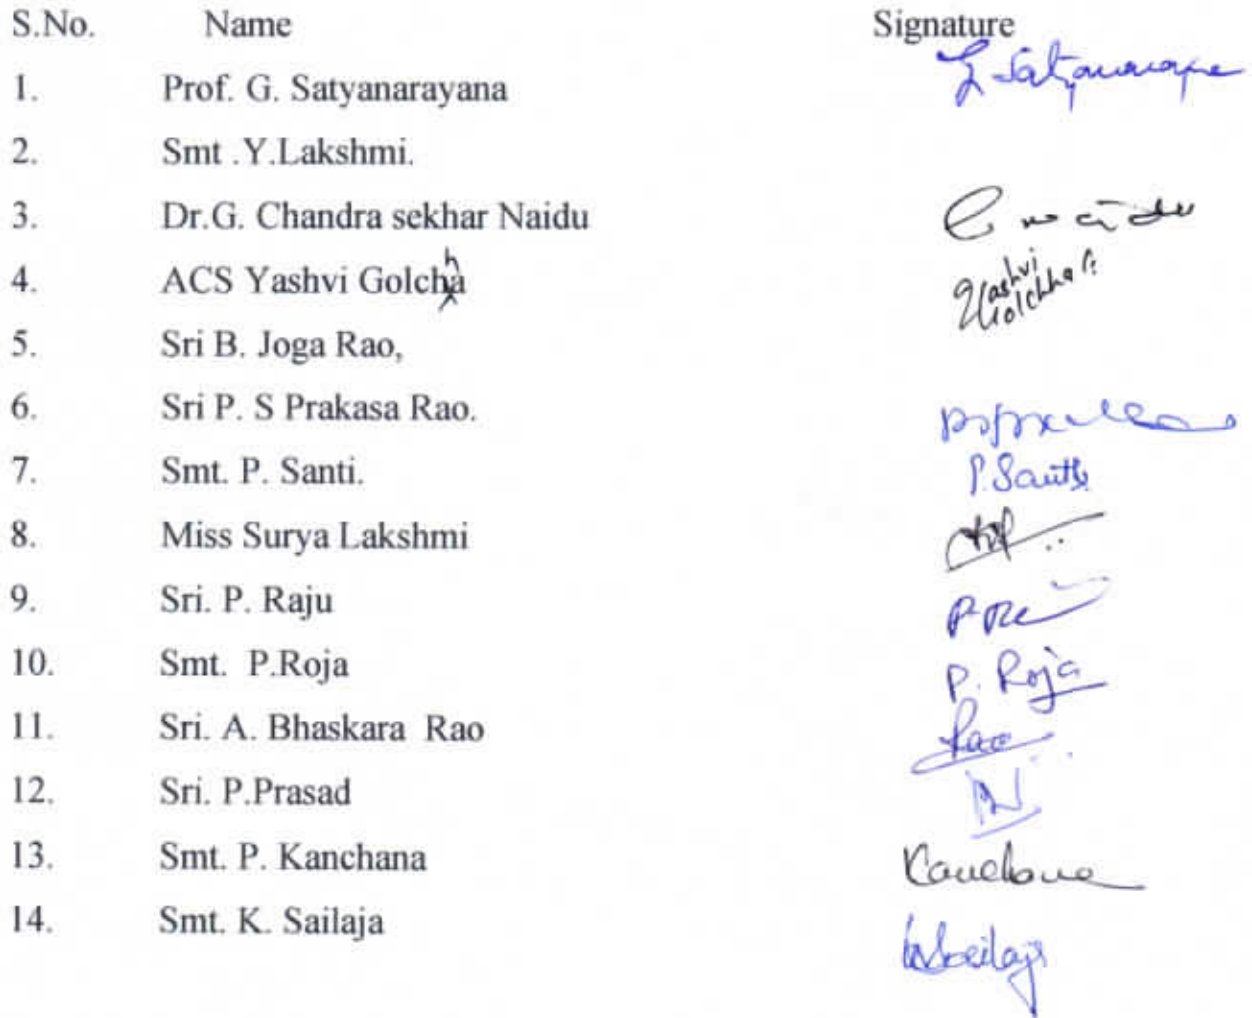 S.No. Name Signature
1. Prof. G. Satyanarayana G Satyanarayana
2. Smt .Y.Lakshmi.
3. Dr.G. Chandra sekhar Naidu
4. ACS Yashvi Golchha Yashvi Golchha
5. Sri B. Joga Rao,
6. Sri P. S Prakasa Rao.
7. Smt. P. Santi. P. Santhi
8. Miss Surya Lakshmi
9. Sri. P. Raju
10. Smt. P.Roja P. Roja
11. Sri. A. Bhaskara Rao Rao
12. Sri. P.Prasad
13. Smt. P. Kanchana Kanchana
14. Smt. K. Sailaja K Sailaja